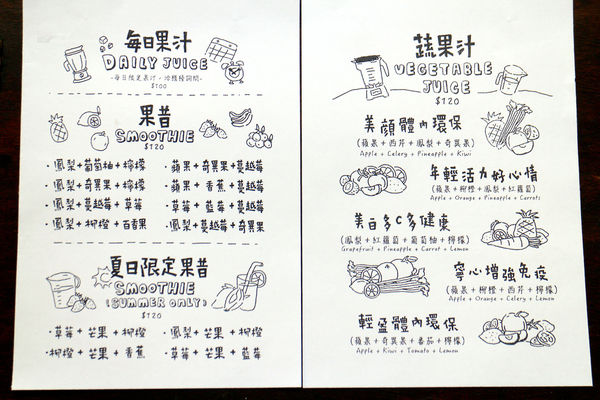 每日果汁
DAILY JUICE
-每日限定果汁，洽櫃檯詢問-
$100
果昔
SMOOTHIE
$120
·鳳梨+葡萄柚+檸檬
·蘋果+奇異果+蔓越莓
·鳳梨+奇異果+檸檬
·蘋果+香蕉+蔓越莓
·鳳梨+蔓越莓+草莓
·草莓+藍莓+蔓越莓
·鳳梨+柳橙+百香果
·鳳梨+蔓越莓+奇異果
夏日限定果昔
SMOOTHIE
(SUMMER ONLY)
$120
·草莓+芒果+柳橙
·鳳梨+芒果+柳橙
·柳橙+芒果+香蕉
·草莓+芒果+藍莓
蔬果汁
VEGETABLE
JUICE
$120
美顏體內環保
(蘋果+西芹+鳳梨+奇異果)
Apple + Celery + Pineapple + Kiwi
年輕活力好心情
(蘋果+柳橙+鳳梨+紅蘿蔔)
Apple + Orange + Pineapple + Carrots
美白多C多健康
(鳳梨+紅蘿蔔+葡萄柚+檸檬)
Grapefruit + Pineapple + Carrot + Lemon
寧心增強免疫
(蘋果+柳橙+西芹+檸檬)
Apple + Orange + Celery + Lemon
輕盈體內環保
(蘋果+奇異果+番茄+檸檬)
Apple + Kiwi + Tomato + Lemon